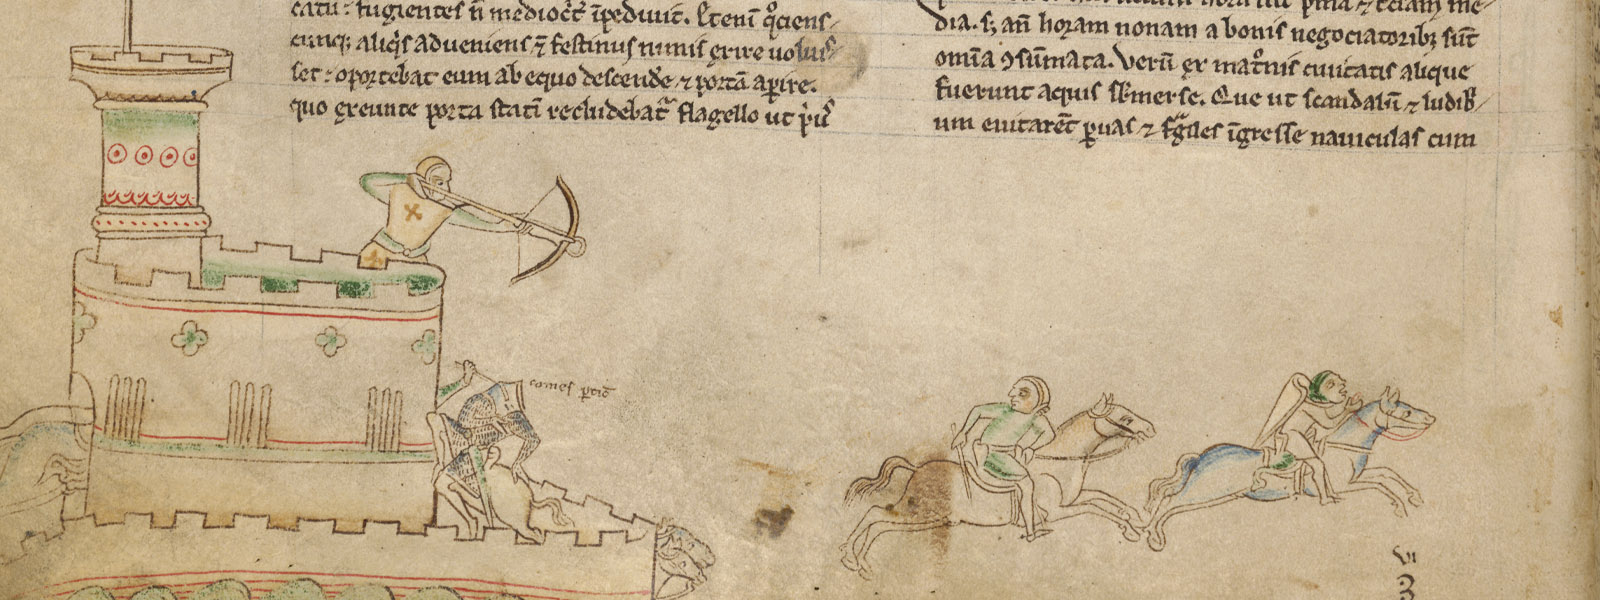 catu: fugientes n̄ mediocr̄t īpediuit. Etenī qͦciens-
cunqꝫ aliqͥs adueniens ⁊ festinus nimis exire uoluis-
set: oportebat eum ab equo descendē ⁊ portā aperire.
quo exeunte porta statī recludebatͬ flagello ut pͥus
dia. sꝫ an̄ horam nonam a bonis negociatoribꝫ sūt
omīa ꝯsūmata. Verū ex matͦnis ciuitatis alique
fuerunt aquis sb̄merse. Que ut scandalū ⁊ ludibͥ-
um euitarēt ꝑuas ⁊ fᵃgiles īgresse nauiculas cum
comes ꝑticͥ
VII
3